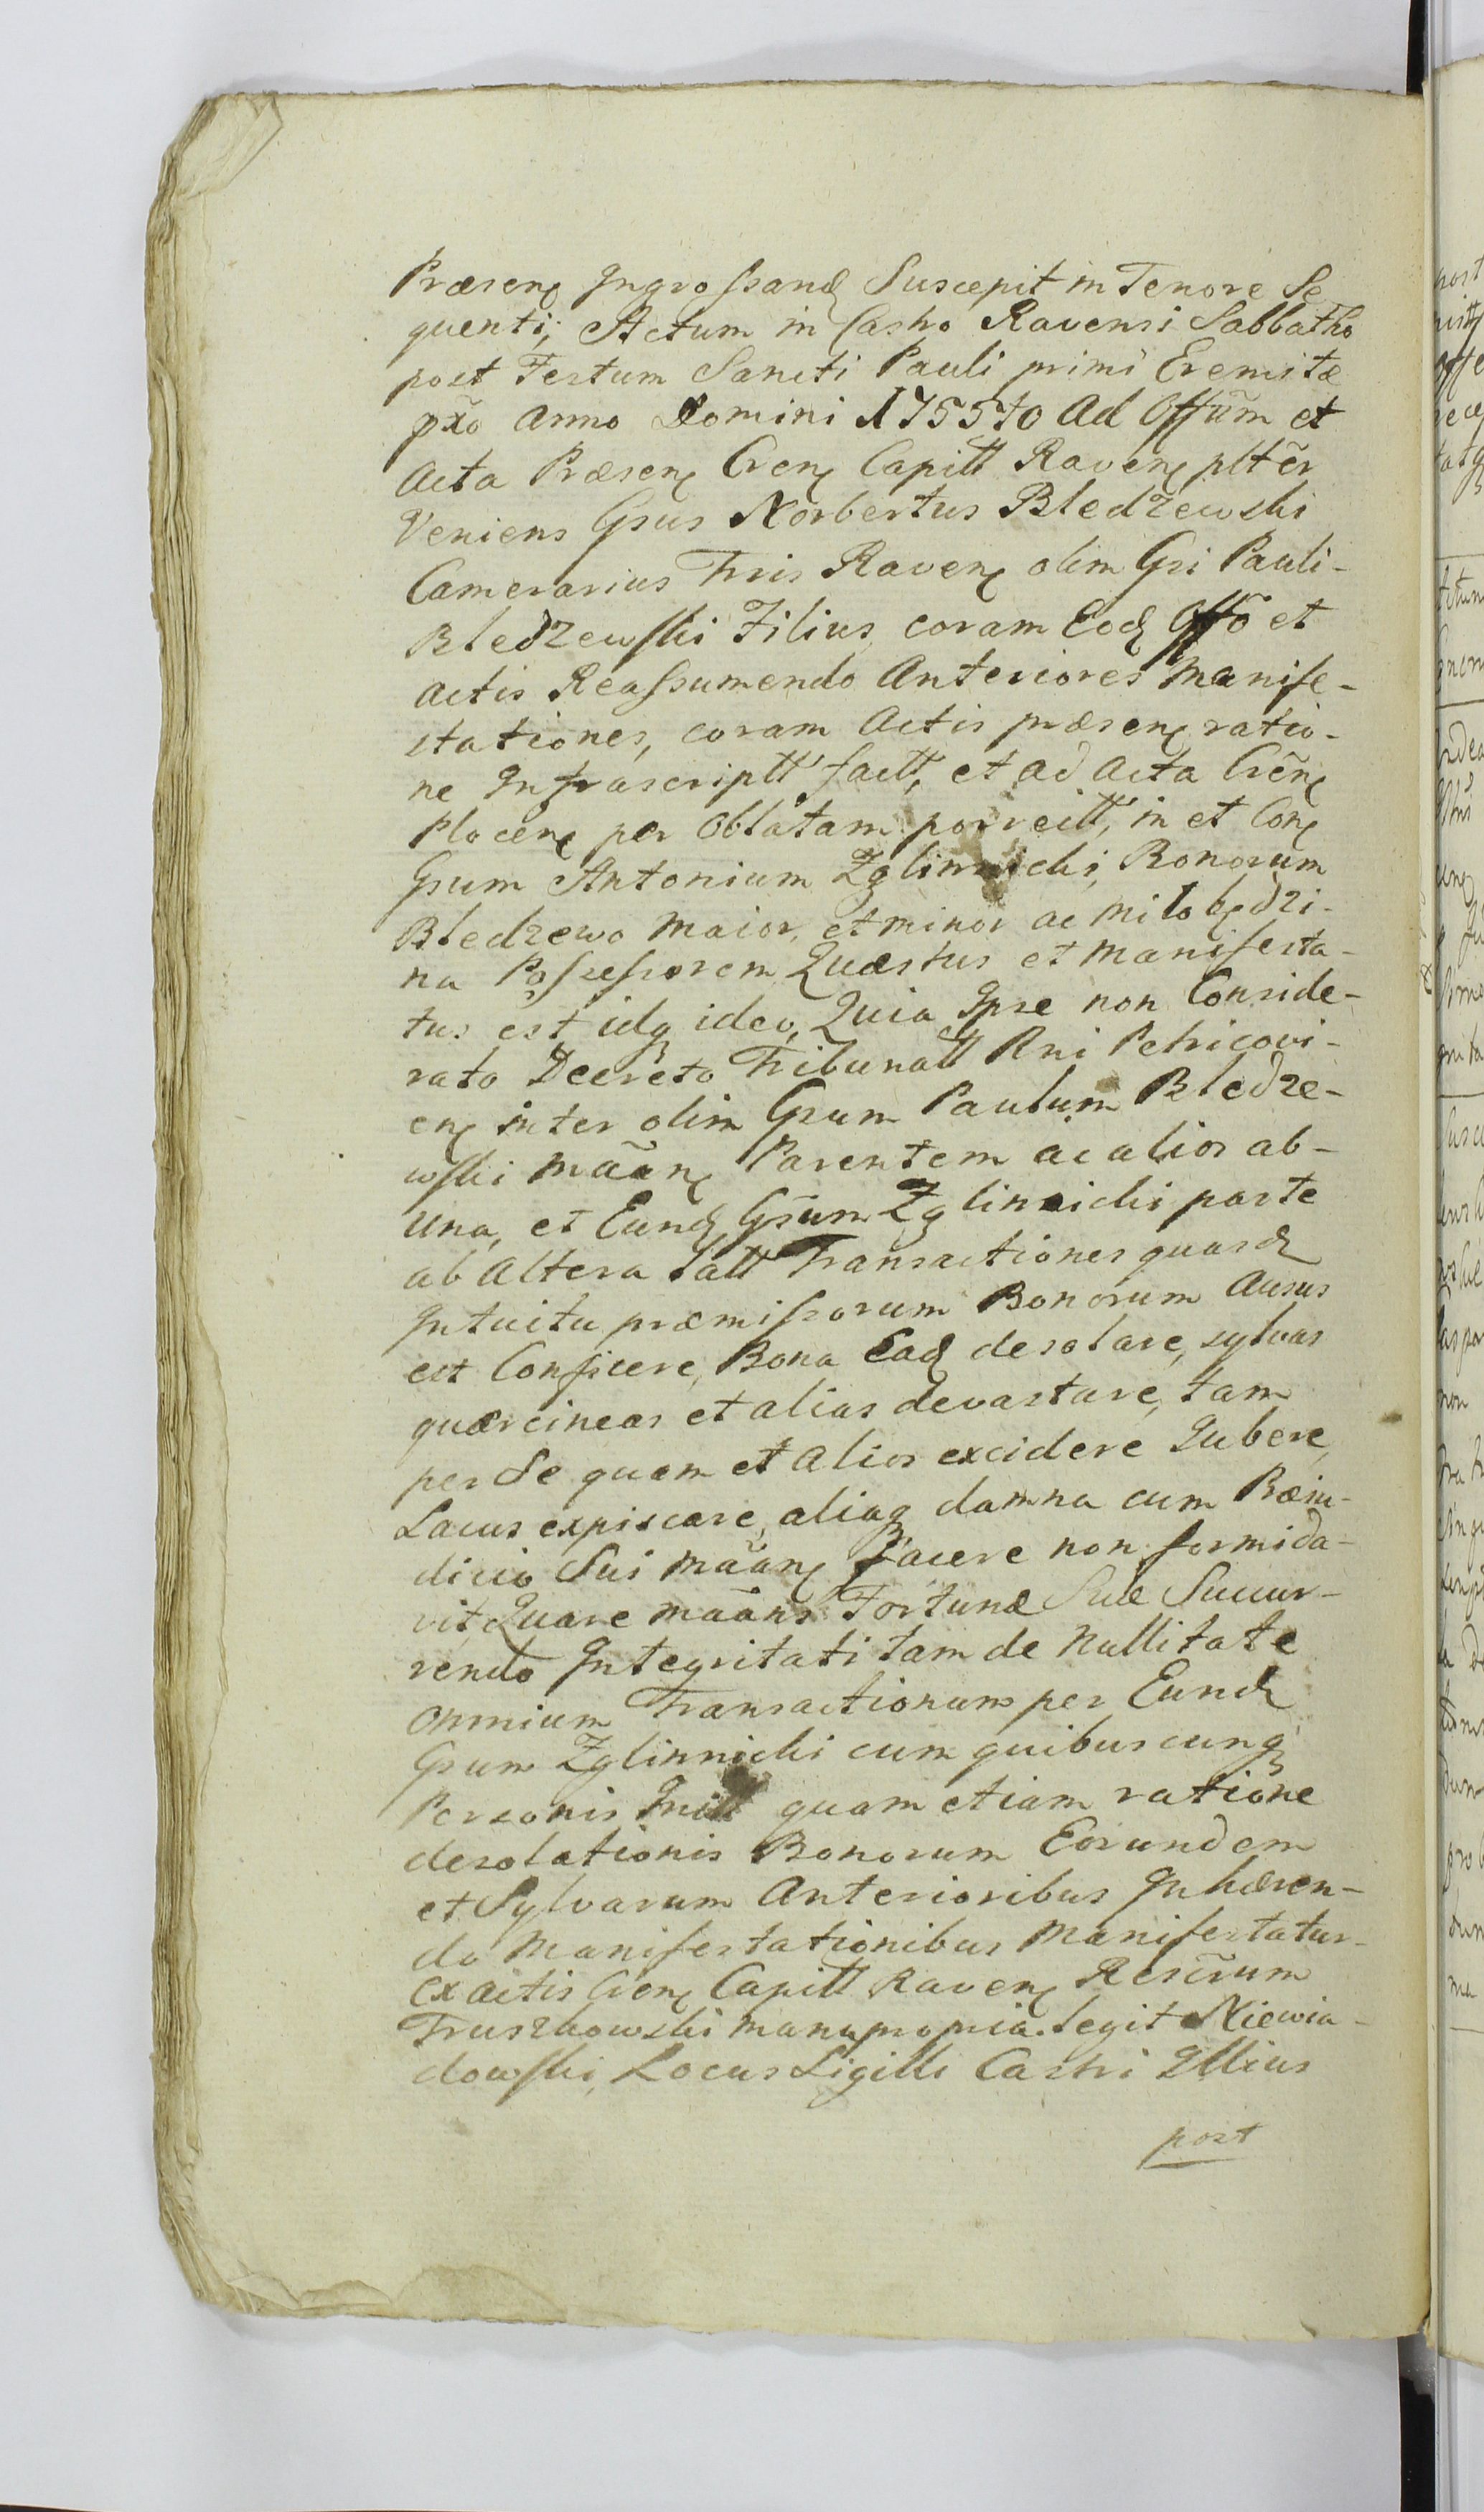 Præsenȩ Ingrossandȩ Suscepit in Tenore Se
quenti; Actum in Castro Ravensi Sabbatho
post Festum Sancti Pauli primi Eremitæ
pxõ Anno Domini 1755to Ad Offũm et
Acta Præsenȩ Crenȩ Capitt Ravenȩ pltẽr
Veniens Gsus Norbertus Bledzewski
Camerarius Tris Ravenȩ olim Gsi Pauli-
Bledzewski Filius, coram Eodȩ Offõ et
actis Reassumendo Anteriores Manife-
stationes, coram Actis præsenȩ ratio-
ne Infrascriptt factt, et ad Acta Crẽnȩ
Plocenȩ per Oblatam porrectt, in et Conȩ
Gsum Antonium Zglinnicki, Bonorum
Bledzewo Maior, et minor ac Milobędzi-
na Possessorem Quæstus et Manifesta-
tus est idq ideo, Quia Ipse non Conside-
rato Decreto Tribunatt Rni Petricovi-
enȩ inter olim Gsum Paulum Bledze-
wski Mãanȩ Parentem ac alios ab-
una, et Eundȩ Gsũm Zglinnicki parte
ab Altera latt Transactiones quasdȩ
Intuitu præmissorum Bonorum Ausus
est Conficere, Bona Eadȩ desolare, sylvas
quærcineas et alias devastare, tam
per Se quam et Alios excidere Iubere,
Lacus expiscare, aliaq damna cum Præiu-
dicio Sui Mãanȩ Facere non formida-
vit, Quare Mãans Fortunæ Suæ Succur-
rendo Integritati tam de Nullitate
Omnium Transactionum per Eundȩ
Gsum Zglinnicki cum quibuscunq
Personis Initt quam etiam ratione
desolationis Bonorum Eorundem
et Sylvarum Anterioribus Inhæren-
do Manifestationibus Manifestatur-
Ex Actis Crenȩ Capitt Ravenȩ Rescr̃um
Truszkowski manupropria. legit Niewia-
dowski, Locus Sigilli Castri Illius
post